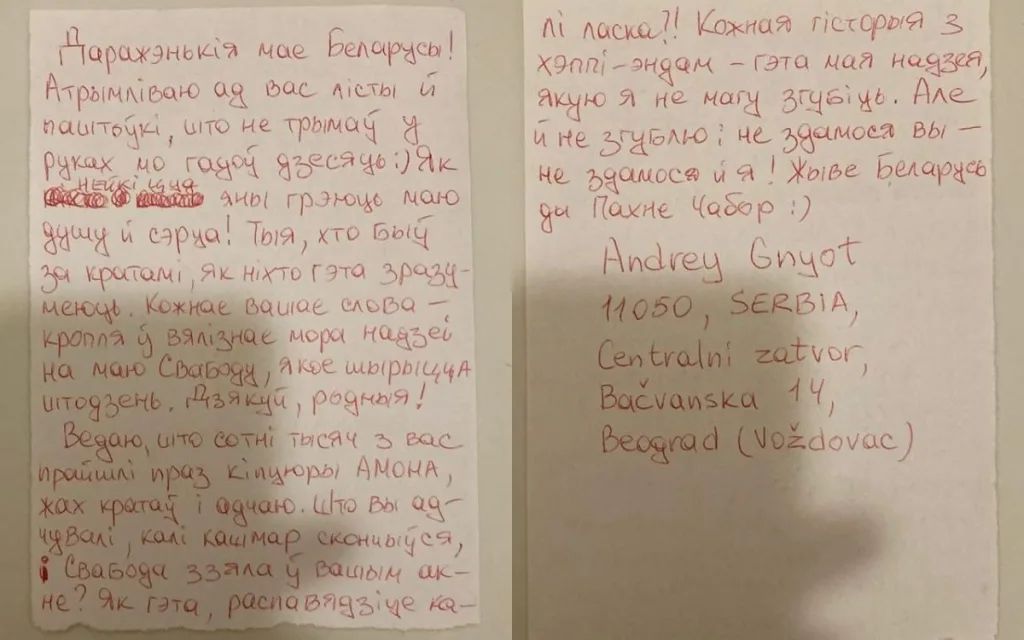 Даражэнькія мае Беларусы!
Атрымліваю ад вас лісты й
паштоўкі, што не трымаў у
руках мо гадоў дзесяць:) Як
яны грэюць маю
душу й сэрца! Тыя, хто быў
за кратамі, як ніхто гэта зразу-
меюць. Кожнае вашае слова –
кропля ў вялізнае мора надзеі
на маю Свабоду, якое шырыцца
штодзень. Дзякуй, родныя!
Ведаю, што сотні тысяч з вас
прайшлі праз кіпцюры АМОНА,
жах кратаў і адчаю. Што вы ад-
чувалі, калі кашмар скончыўся,
і Свабода ззяла ў вашым ак-
не? Як гэта, распавядзіце ка-
лі ласка?! Кожная гісторыя з
хэппі-эндам – гэта мая надзея,
якую я не магу згубіць. Але
й не згублю і не здамося вы –
не здамося й я! Жыве Беларусь
ды Пахне Чабор :)
Andrey Gnyot
11050, SERBIA,
Centralni zatvor,
Bačvanska 14,
Beograd (Voždovac)